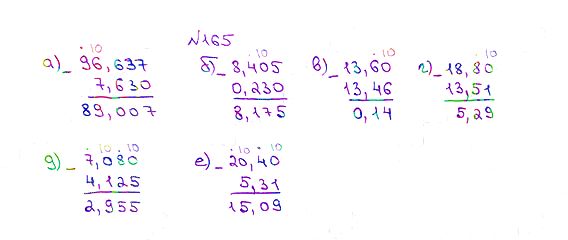 №165
а) _ 96,637
7,630
89,007
б) _ 8,405
0,230
8,175
в) _ 13,60
13,46
0,14
г) _ 18,80
13,51
5,29
д) _ 7,080
4,125
2,955
е) _ 20,40
5,31
15,09